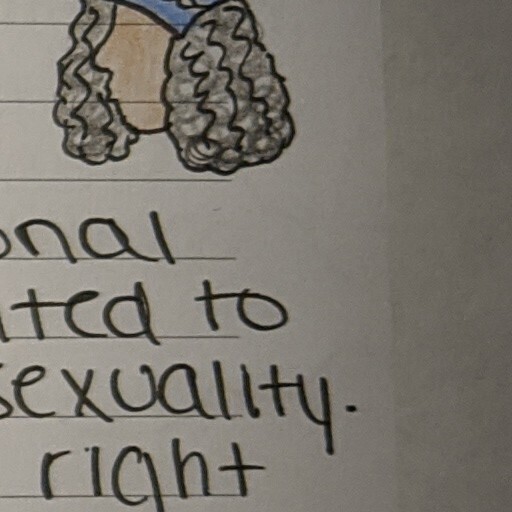 onal
ted to
sexuality.
right